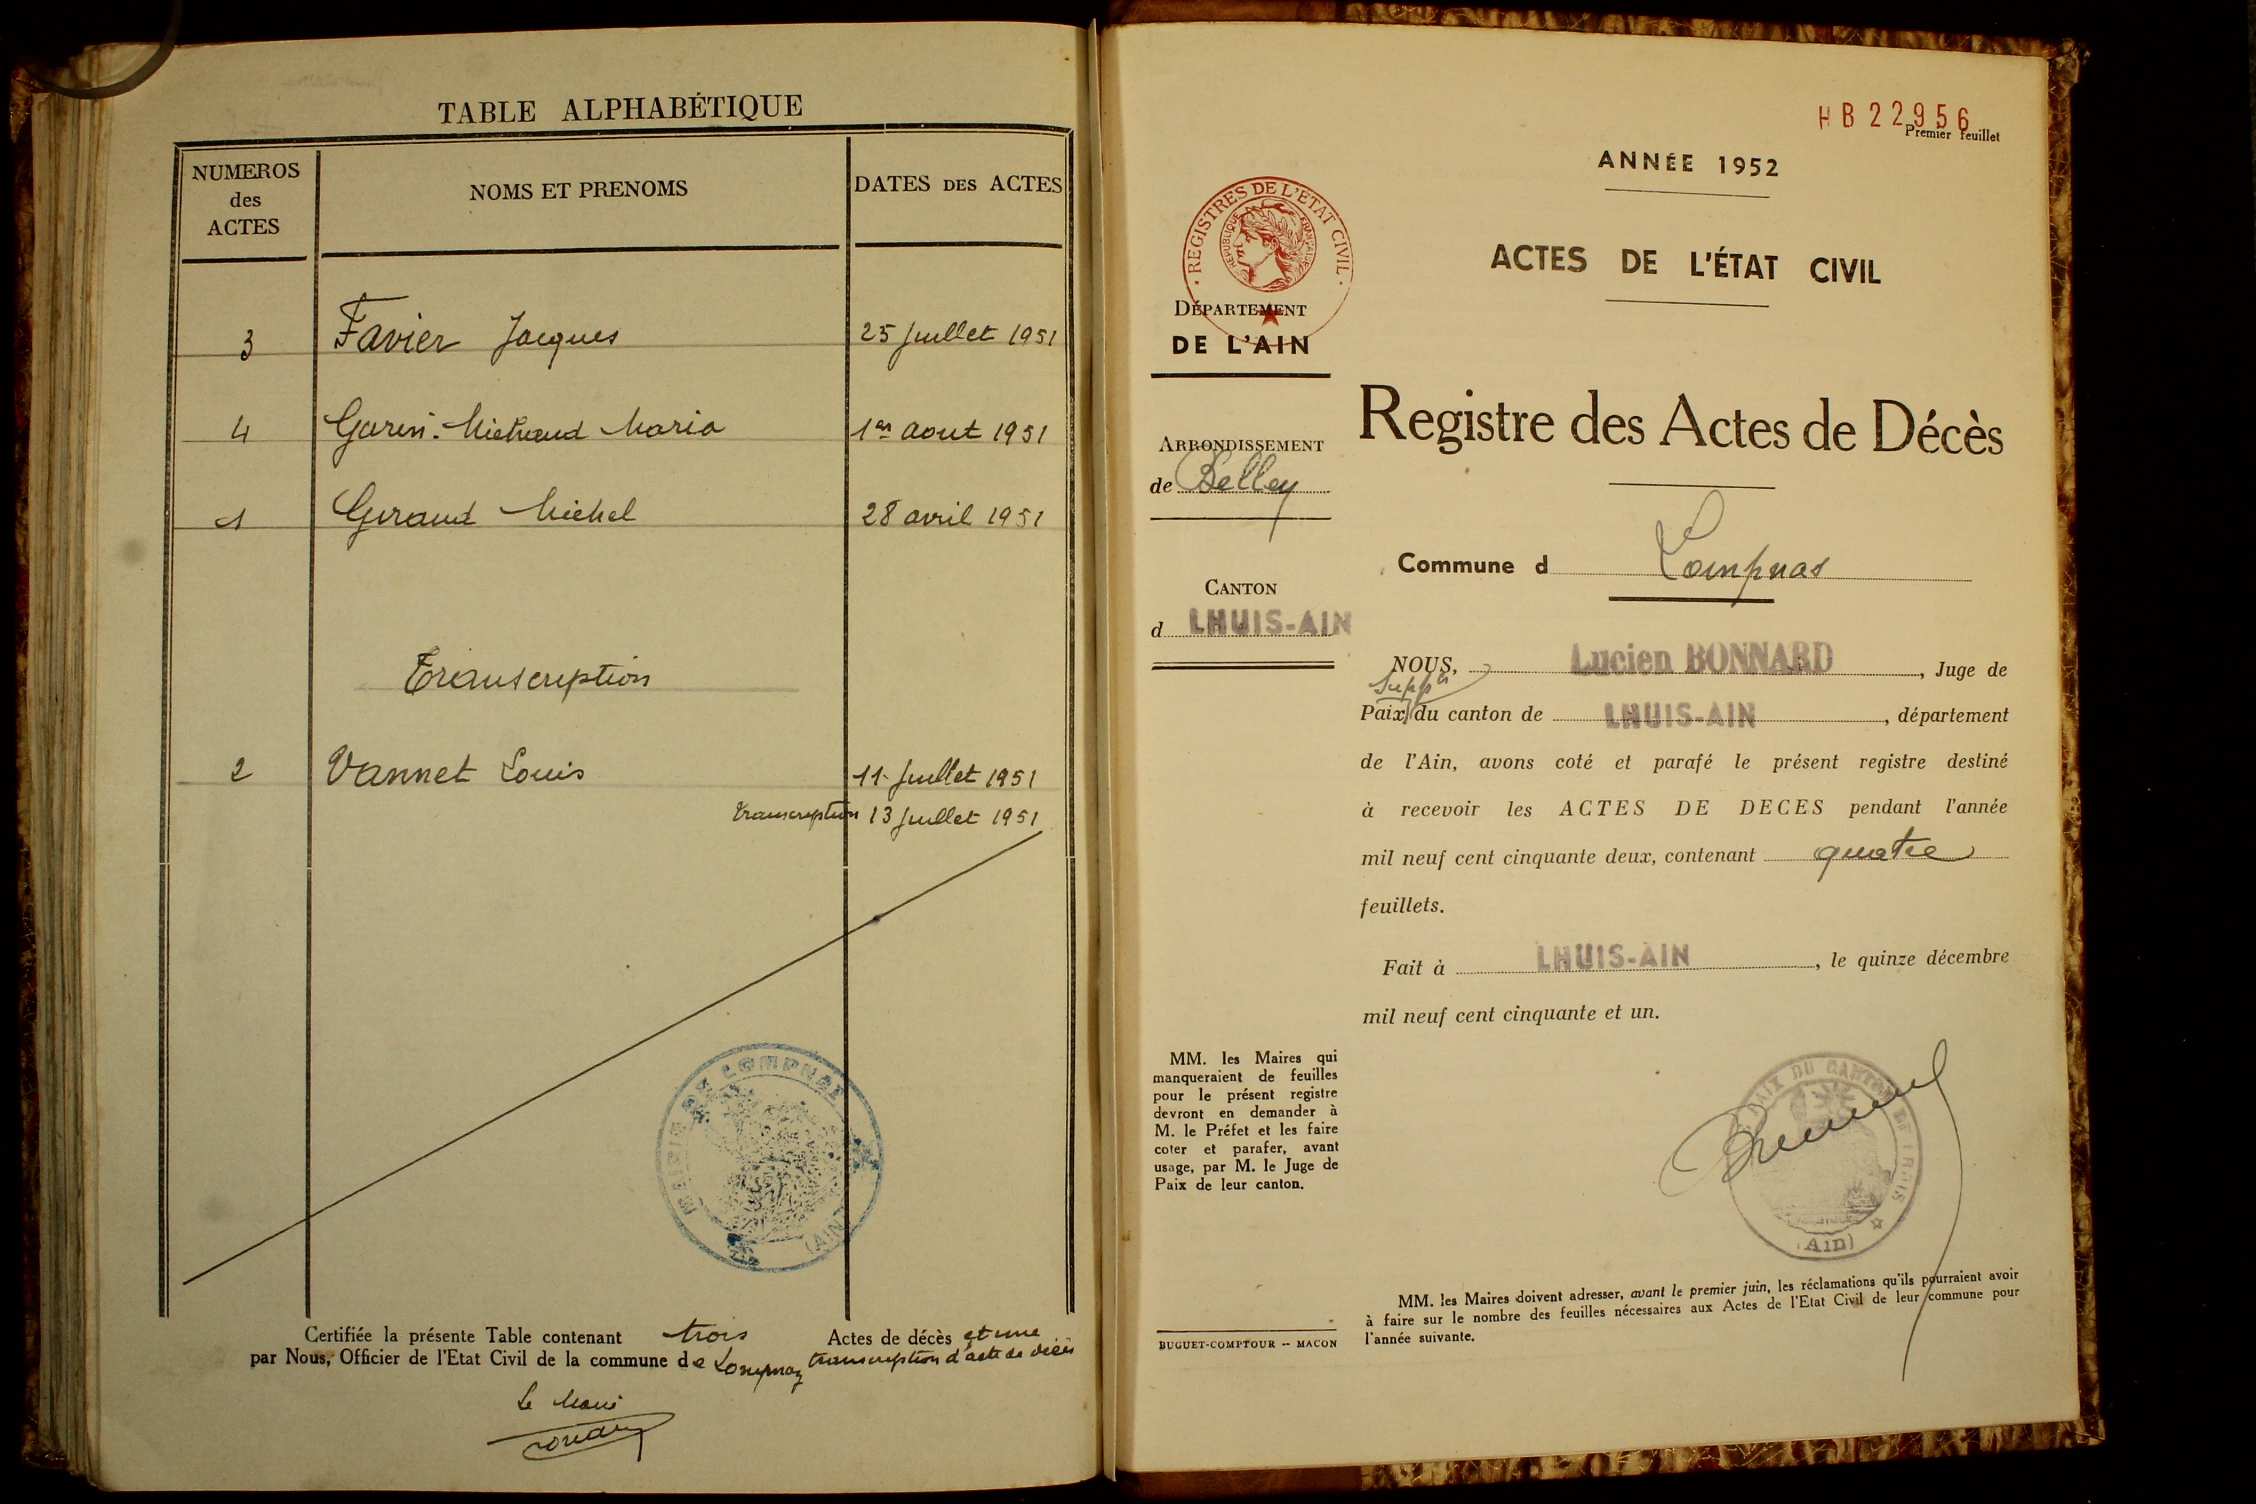 TABLE ALPHABÉTIQUE
NUMEROS
des
ACTES
NOMS ET PRENOMS
DATES DES ACTES
3 Favier Jacques 25 Juillet 1951
4 Garin-Michaud Maria 1er aout 1951
1 Giraud Michel 28 avril 1951
Transcription
2 Vannet Louis 11 Juillet 1951
transcription 13 Juillet 1951
MAIRIE DE LOMPNAZ
(AIN)
Certifiée la présente Table contenant trois Actes de décès et une
par Nous, Officier de l'Etat Civil de la commune de Lompnaz transcription d'acte de décès
Le Maire
HB22956
Premier feuillet
ANNÉE 1952
REGISTRES DE L'ETAT CIVIL
REPUBLIQUE FRANÇAISE
ACTES DE L'ÉTAT CIVIL
DÉPARTEMENT
DE L'AIN
Registre des Actes de Décès
ARRONDISSEMENT
de Belley
Commune d Lompnas
CANTON
d LHUIS-AIN
NOUS, Lucien BONNARD, Juge de
Suppt
Paix du canton de LHUIS-AIN, département
de l'Ain, avons coté et parafé le présent registre destiné
à recevoir les ACTES DE DECES pendant l'année
mil neuf cent cinquante deux, contenant quatre
feuillets.
Fait à LHUIS-AIN, le quinze décembre
mil neuf cent cinquante et un.
MM. les Maires qui
manqueraient de feuilles
pour le présent registre
devront en demander à
M. le Préfet et les faire
coter et parafer, avant
usage, par M. le Juge de
Paix de leur canton.
PAIX DU CANTON DE LHUIS
(Ain)
MM. les Maires doivent adresser, avant le premier juin, les réclamations qu'ils pourraient avoir
à faire sur le nombre des feuilles nécessaires aux Actes de l'Etat Civil de leur commune pour
l'année suivante.
BUGUET-COMPTOUR -- MACON